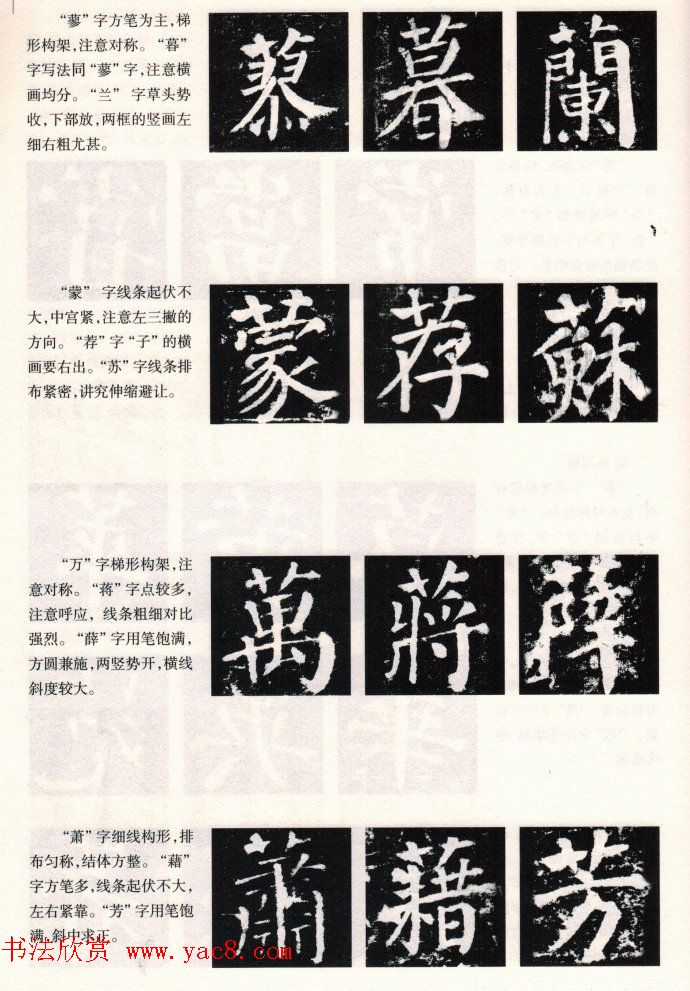 “蓼”字方笔为主，梯
形构架，注意对称。“暮”
字写法同“蓼”字，注意横
画均分。“兰”字草头势
收，下部放，两框的竖画左
细右粗尤甚。
暮 蘭
“蒙”字线条起伏不
大，中宫紧，注意左三撇的
方向。“荐”字“子”的横
画要右出。“苏”字线条排
布紧密，讲究伸缩避让。
蒙 荐 蘇
“万”字梯形构架，注
意对称。“蒋”字点较多，
注意呼应，线条粗细对比
强烈。“薛”字用笔饱满，
方圆兼施，两竖势开，横线
斜度较大。
萬 蔣 薛
“萧”字细线构形，排
布匀称，结体方整。“藉”
字方笔多，线条起伏不大，
左右紧靠。“芳”字用笔饱
满，斜中求正。
蕭 藉 芳
书法欣赏 www.yac8.com